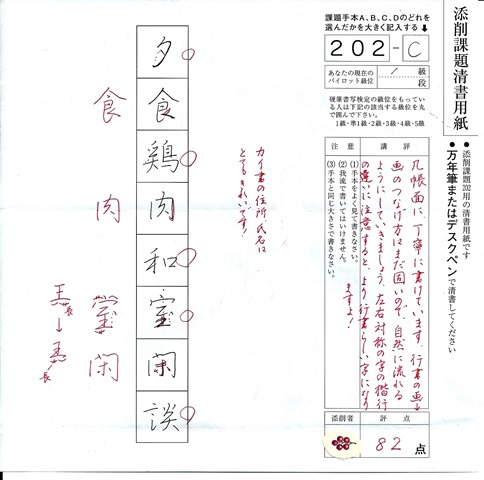 添削課題清書用紙
● 添削課題202用の清書用紙です
● 万年筆またはデスクペンで清書してください
課題手本A、B、C、Dのどれを
選んだかを大きく記入する
202-C
あなたの現在の
パイロット級位
1級
段
硬筆書写検定の級位をもってい
る人は下記の該当する級位を丸
で囲んで下さい。
1級・準1級・2級・3級・4級・5級
講評
几帳面に、丁寧に書けています。行書の画→
画のつなげ方はまだ固いので、自然に流れる
ようにしていきましょう。左右対称の字の楷行
の違いに注意すると、より行書らしい字になり
ますよ!
注意
(1) 手本をよく見て書きなさい。
(2) 我流で書いてはいけません。
(3) 手本と同じ大きさで書きなさい。
評点
82点
添削者
カイ書の住所、氏名は
とてもきれいです!
夕食鶏肉和室閑談
食 肉 室 閑
長
長